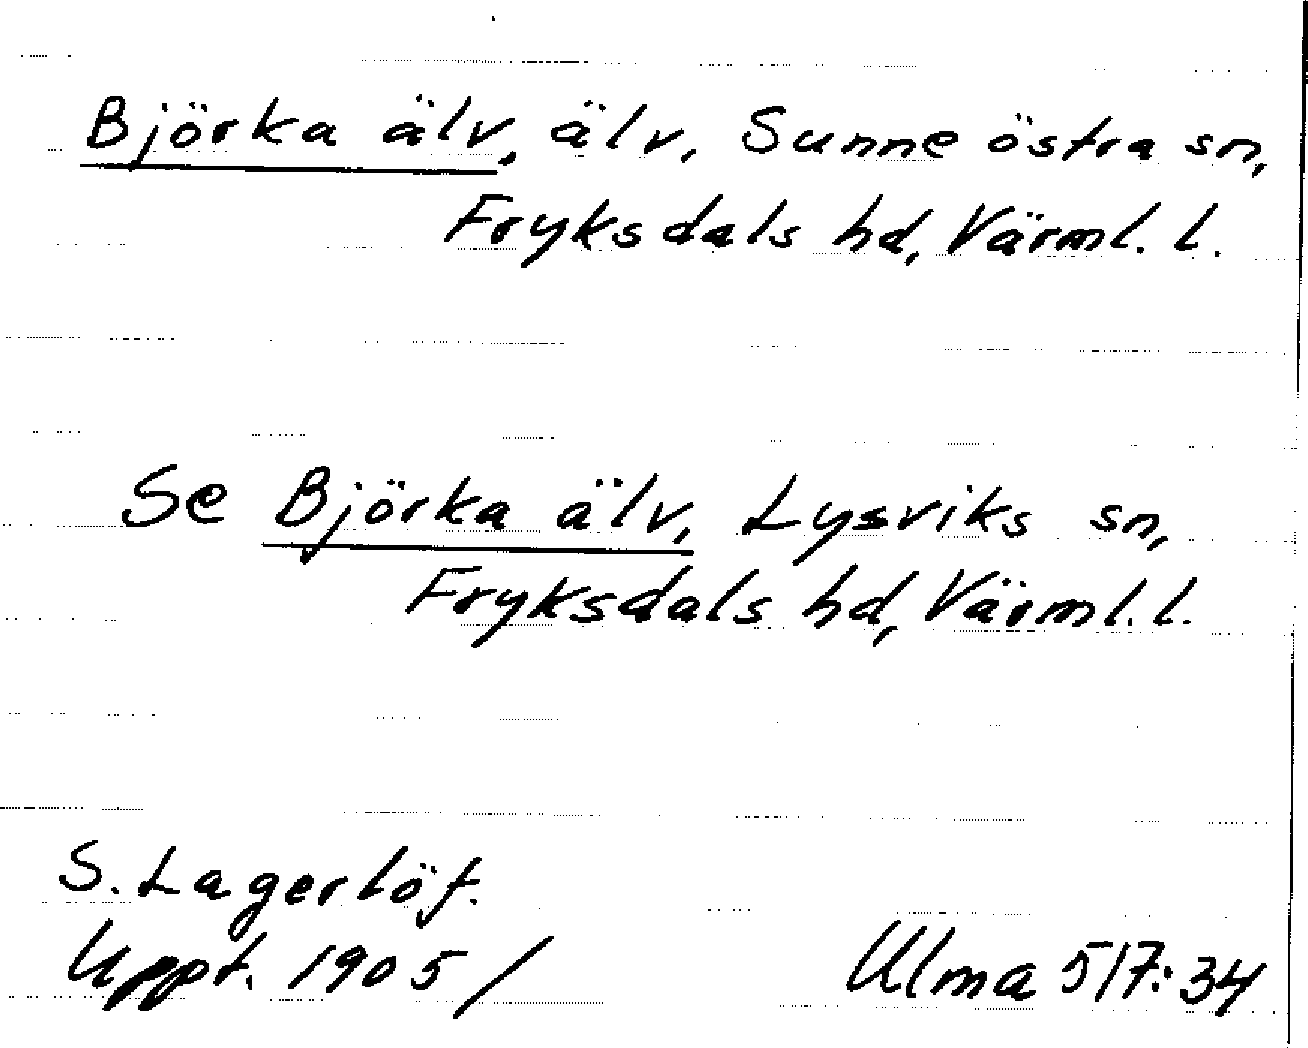 Björka älv, älv, Sunne östra sn,
Fryksdals hd, Värml. l.
Se Björka älv, Lysviks sn,
Fryksdals hd, Värml. l.
S. Lagerlöf.
Uppt. 1905/
Ulma 517:34